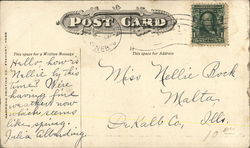 POST CARD
This space for a Written Message
This space for Address
Hello, how is
Nellie by this
time? We're
having fine
weather now
which seems
like spring.
Julia
Miss Nellie Bock
Malta
DeKalb Co., Ills.